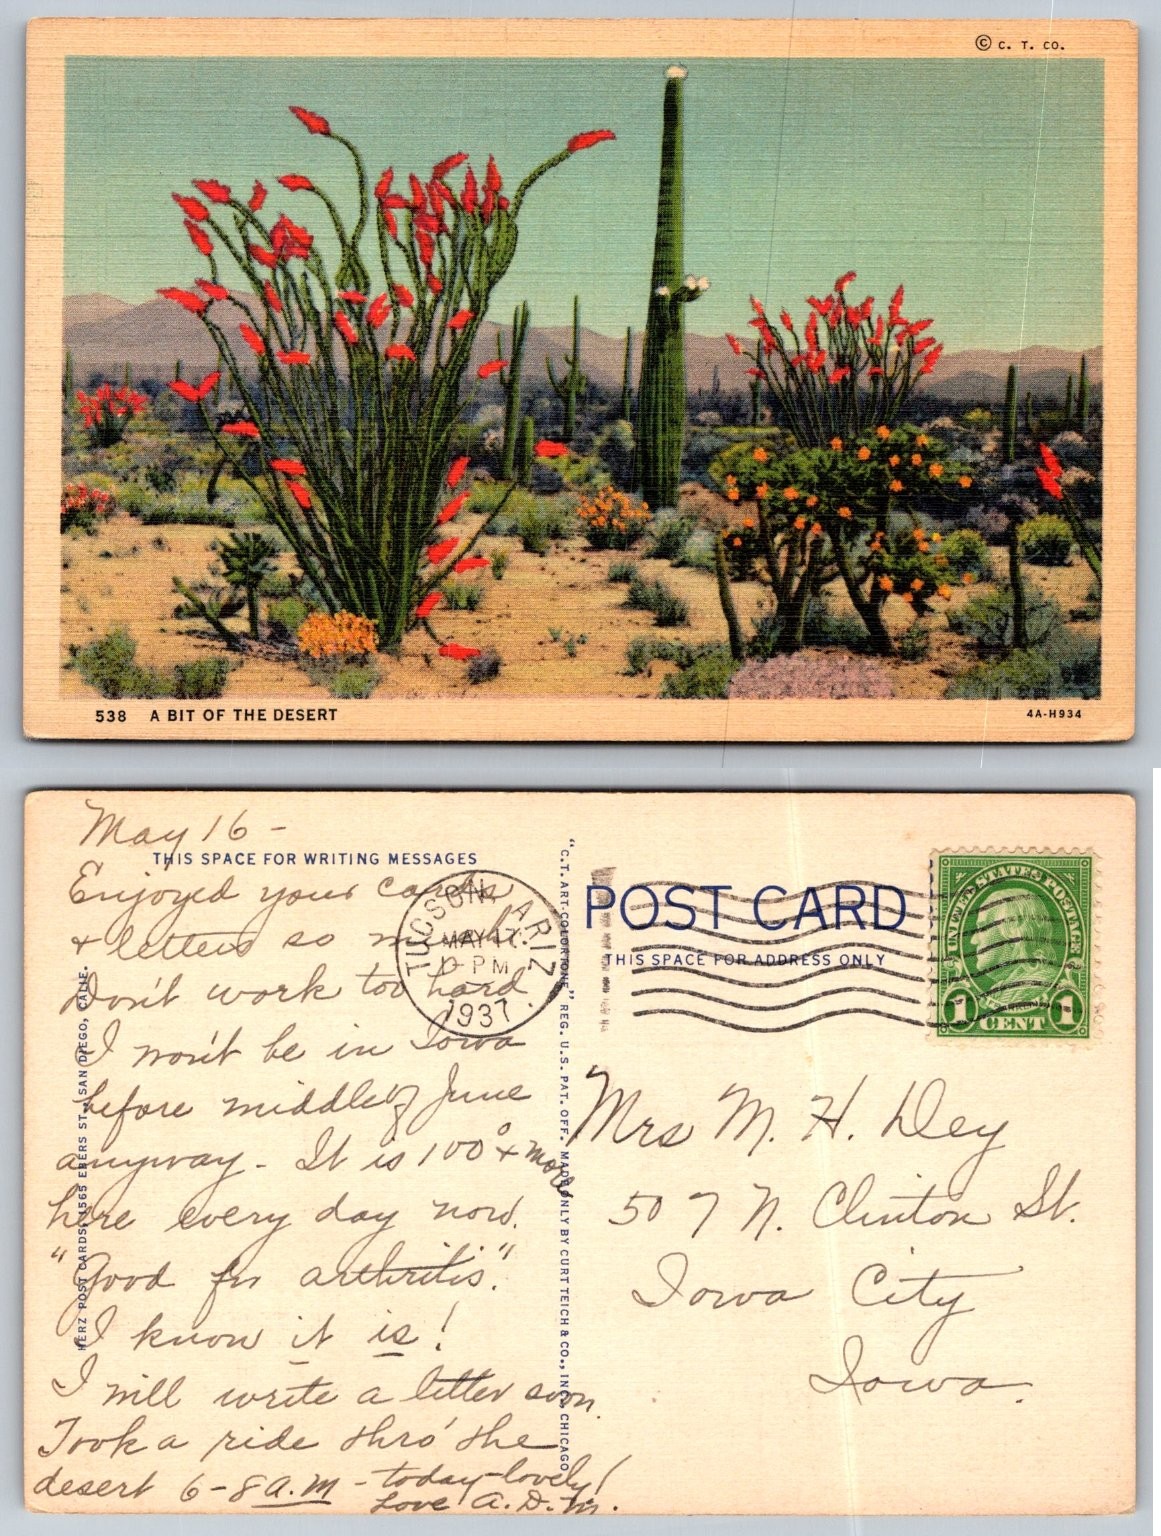 © C. T. CO.
538 A BIT OF THE DESERT
4A-H934
May 16 -
THIS SPACE FOR WRITING MESSAGES
Enjoyed your cards
& letters so much.
Don't work too hard
I won't be in Iowa
before middle of June
anyway - It is 100° & more
here every day now.
"Good for arthritis".
I know it is!
I will write a letter soon.
Took a ride thro' the
desert 6-8 A.M - today - lovely!
Love A. D. M.
HERZ POST CARDS, 4565 EBERS ST., SAN DIEGO, CALIF.
TUCSON, ARIZ.
MAY 17
PM
1937
"C.T. ART-COLORTONE" REG. U.S. PAT. OFF. MADE ONLY BY CURT TEICH & CO., INC., CHICAGO
POST CARD
THIS SPACE FOR ADDRESS ONLY
UNITED STATES POSTAGE
1 CENT 1
Mrs M. H. Dey
507 N. Clinton St.
Iowa City
Iowa.